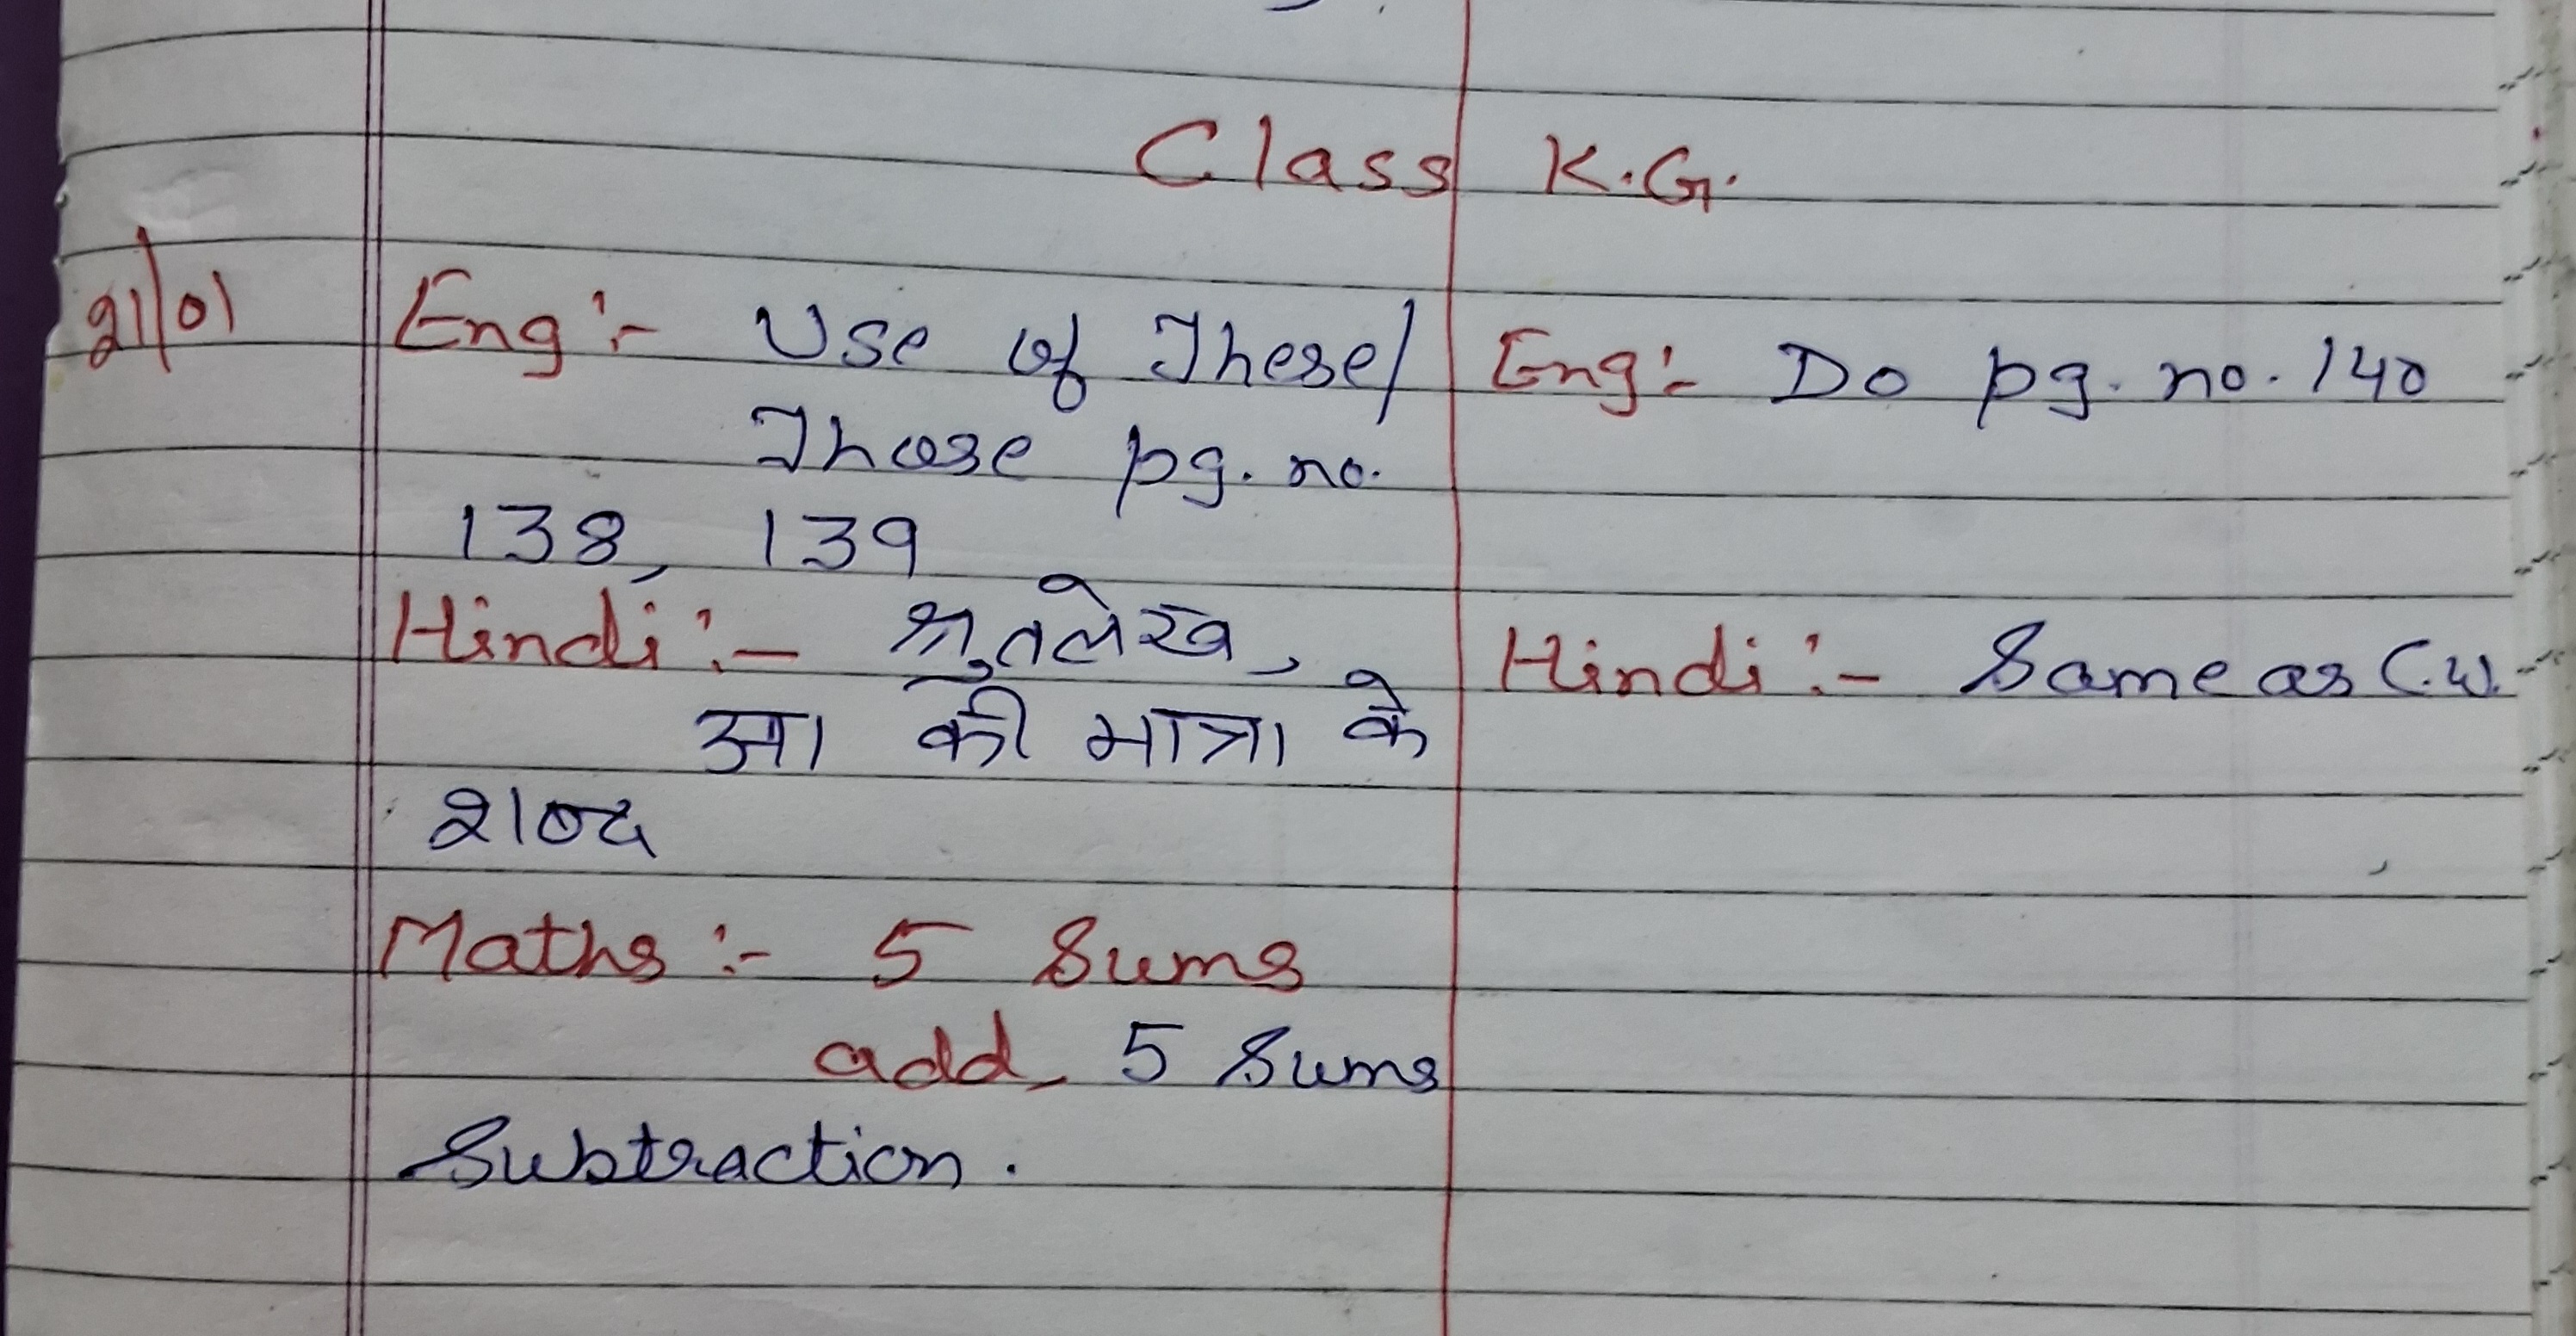 Class K.G.
21/01
Eng :- Use of These/
Those pg. no.
138, 139
Hindi :- श्रुतलेख,
आ की मात्रा के
शब्द
Maths :- 5 Sums
add, 5 Sums
Subtraction.
Eng :- Do pg. no. 140
Hindi :- Same as C.W.